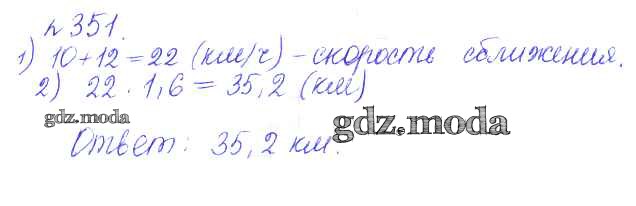 №351.
1) 10+12=22 (км/ч) - скорость сближения.
2) 22 · 1,6 = 35,2 (км)
gdz.moda
gdz.moda
Ответ: 35,2 км.